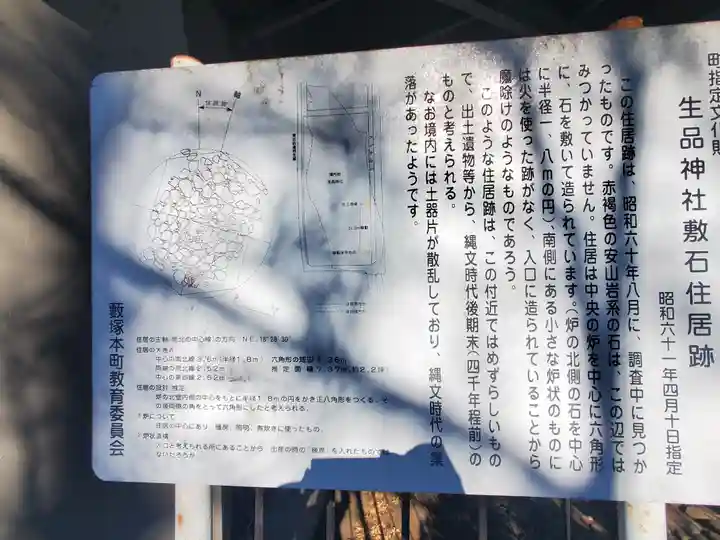 町指定文化財
生品神社敷石住居跡
昭和六十一年四月十日指定
この住居跡は、昭和六十年八月に、調査中に見つか
ったものです。赤褐色の安山岩系の石は、この辺では
みつかっていません。住居は中央の炉を中心に六角形
に、石を敷いて造られています。(炉の北側の石を中心
に半径一、八mの円)、南側にある小さな炉状のものに
は火を使った跡がなく、入口に造られていることから
魔除けのようなものであろう。
このような住居跡は、この付近ではめずらしいもの
で、出土遺物等から、縄文時代後期末(四千年程前)の
ものと考えられる。
なお境内には土器片が散乱しており、縄文時代の集
落があったようです。
N
住居の主軸(南北の中心線)の方向
住居の大きさ
六角形の短辺
住居の設計 推定
炉の北壁内側の中心をもとに半径1.8mの円をかき正八角形をつくる。そ
の後両側の角をとって六角形にしたと考えられる。
炉について
住居の中心にあり
に使ったもの。
炉状遺構
入口と考えられる所にあることから
ないだろうか
藪塚本町教育委員会